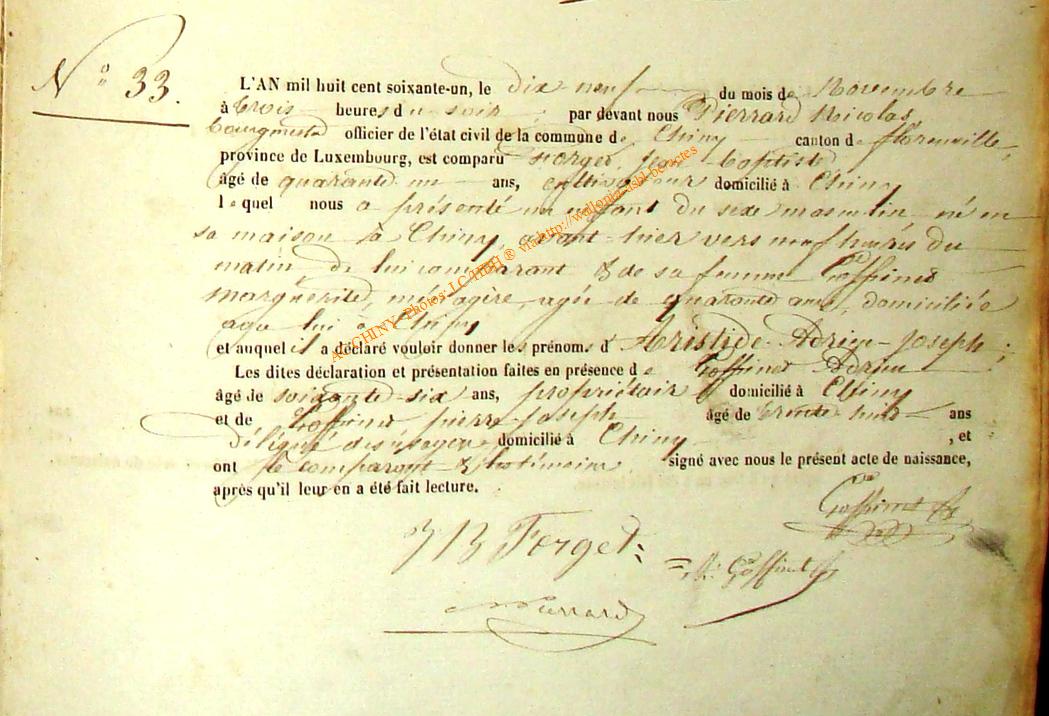 N° 33.
L'AN mil huit cent soixante-un, le dix neuf du mois de Novembre
à trois heures du soir ; par devant nous Pierrard Nicolas,
bourgmestre officier de l'état civil de la commune de Chiny canton de florenville,
province de Luxembourg, est comparu Forget, jean baptiste
âgé de quarante un ans, cultivateur domicilié à Chiny
lequel nous a présenté un enfant du sexe masculin né en
sa maison à Chiny, avant-hier vers neuf heures du
matin, de lui comparant & de sa femme Goffinet
Marguerite, ménagère, agée de quarante ans, domiciliée
avec lui à Chiny
et auquel il a déclaré vouloir donner les prénoms d' Aristide-Adrien-Joseph ;
Les dites déclaration et présentation faites en présence de Goffinet Adrien
âgé de soixante-six ans, propriétaire domicilié à Chiny
et de Goffinet pierre-joseph âgé de trente huit ans
délégué des usagers domicilié à Chiny , et
ont le comparant & les témoins signé avec nous le présent acte de naissance,
après qu'il leur en a été fait lecture.
Goffinet
JB Forget
Goffinet
Pierrard
AC CHINY - Photos: LC-HBH ® via http://wallonia-asbl.be/actes